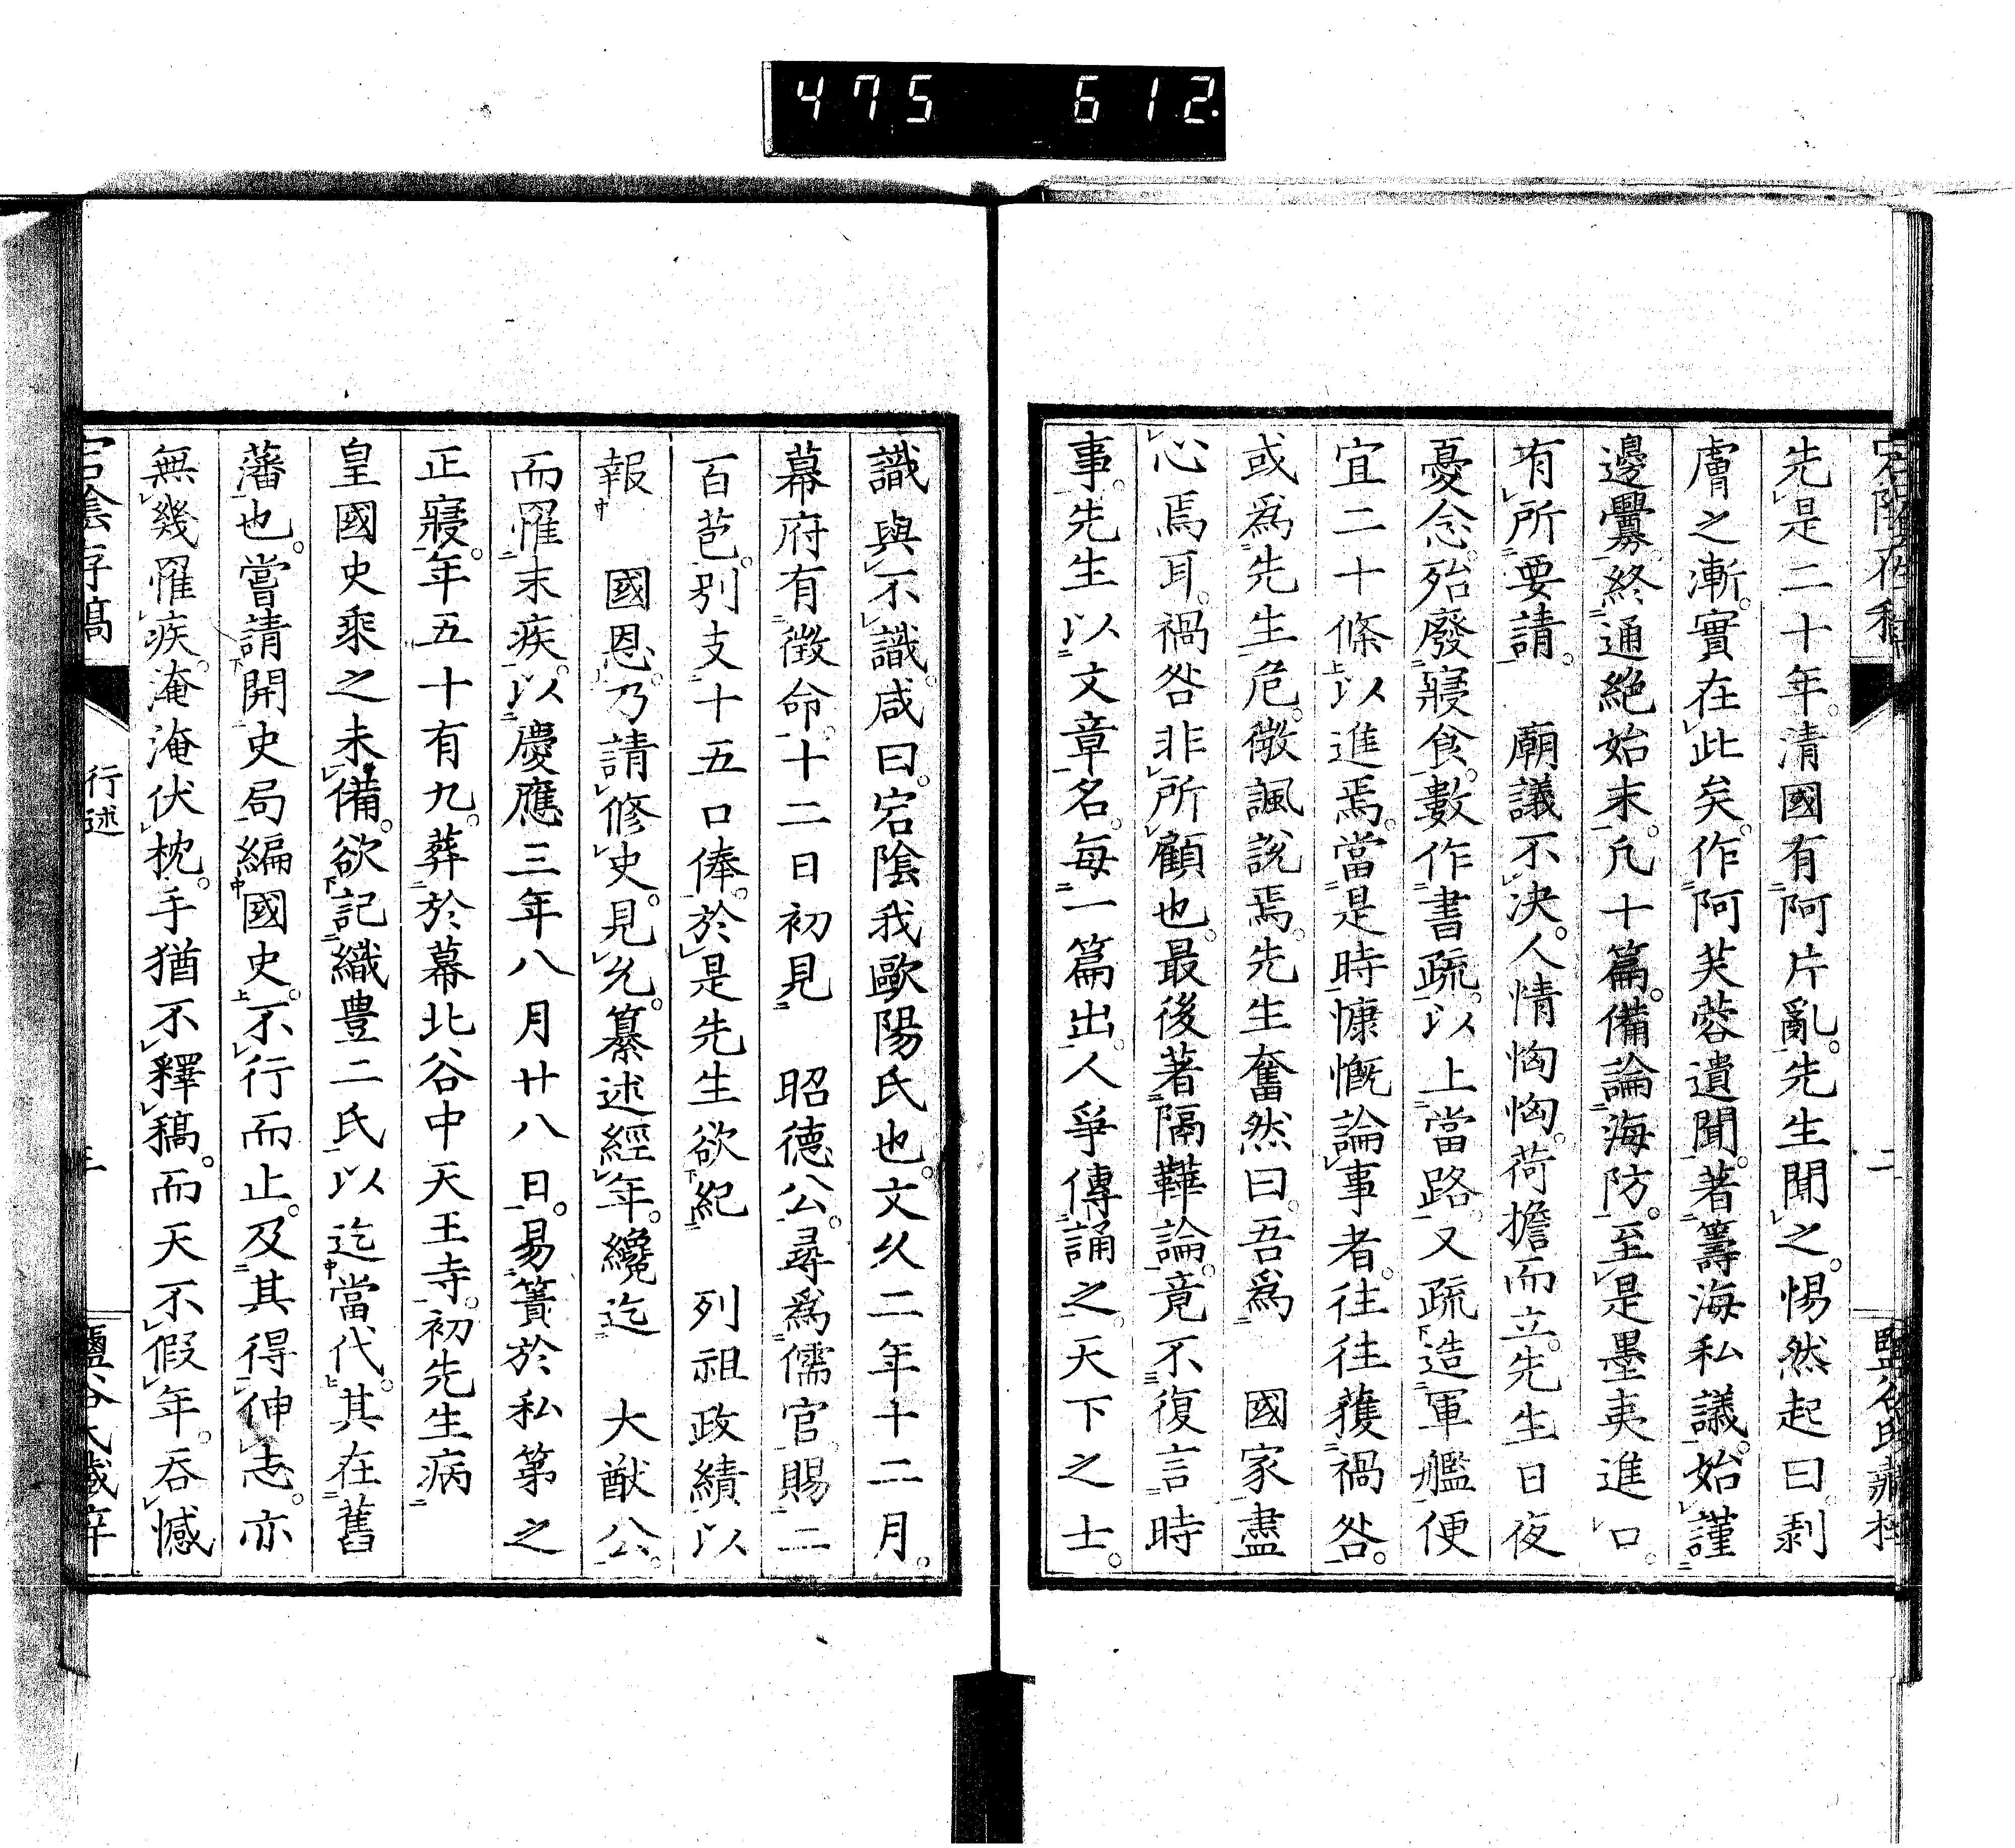 475 612
先是二十年。清國有阿片亂。先生聞之。惕然起曰。剥
膚之漸。實在此矣。作阿芙蓉遺聞。著籌海私議。始謹
邊釁。終通絶始末。凡十篇。備論海防。至是墨夷進口。
有所要請。 廟議不决。人情恟恟。荷擔而立。先生日夜
憂念。殆廢寢食。數作書疏。以上當路。又疏造軍艦便
宜二十條以進焉。當是時慷慨論事者。往往獲禍咎。
或爲先生危。微諷說焉。先生奮然曰。吾爲 國家盡
心焉耳。禍咎非所顧也。最後著隔鞾論。竟不復言時
事。先生以文章名。每一篇出。人爭傳誦之。天下之士。
識與不識。咸曰。宕陰我歐陽氏也。文久二年十二月。
幕府有徵命。十二日初見 昭德公。尋爲儒官。賜二
百苞。別支十五口俸。於是先生欲紀 列祖政績以
報 國恩。乃請修史。見允。纂述經年。纔迄 大猷公。
而罹末疾。以慶應三年八月廿八日。易簀於私第之
正寢。年五十有九。葬於幕北谷中天王寺。初先生病
皇國史乘之未備。欲記織豊二氏以迄當代。其在舊
藩也。嘗請開史局編國史。不行而止。及其得伸志。亦
無幾罹疾。淹淹伏枕。手猶不釋稿。而天不假年。吞憾
宕陰存稿
行述